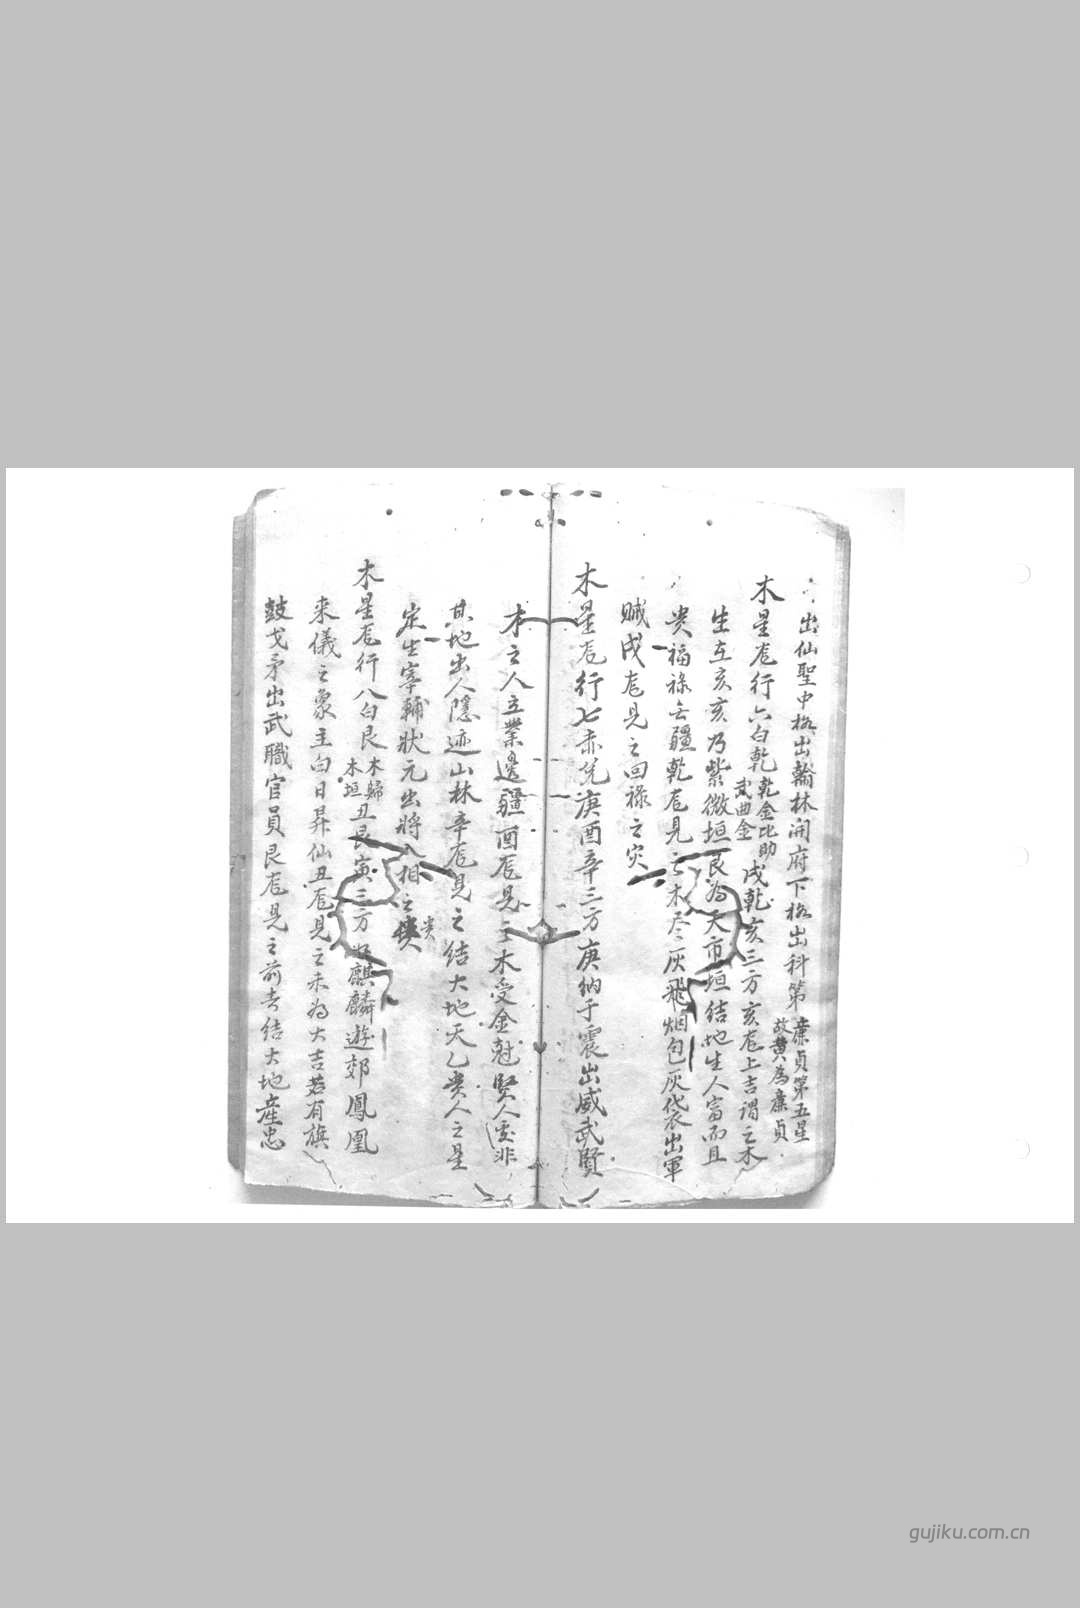 出仙聖中格出翰林開府下格出科第廉貞第五星故黄為廉貞
木星尅行六白乾乾金比助武曲金戌乾亥三方亥尅上吉谓之木
生在亥亥乃紫微垣艮為天市垣结地生人富而且
贵福禄无疆乾尅見之木尽灰飛烟包灰袋出軍
贼戌尅見之回禄之灾
木星尅行七赤兑庚酉辛三方庚纳于震出威武賢
才之人立業邊疆酉尅見之木受金尅賢人受非
其地出人隱迹山林辛尅見之结大地天乙贵人之星
定生宰輔狀元出將入相之贵
木星尅行八白艮木歸木垣丑艮寅三方如麒麟遊郊鳳凰
来儀之象主白日昇仙丑尅見之未為大吉若有旗
鼓戈矛出武職官員艮尅見之前去结大地産忠
gujiku.com.cn